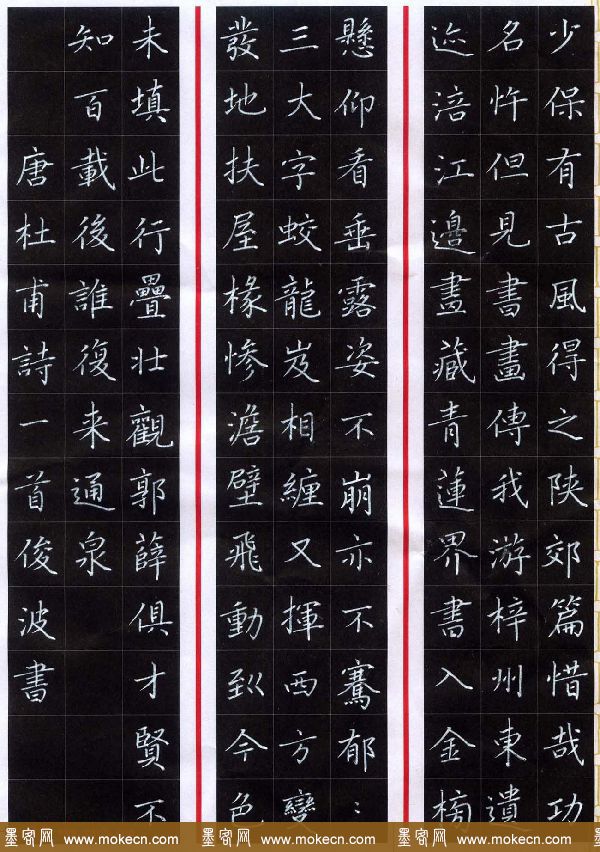 少保有古風得之陝郊篇惜哉功
名忤但見書畫傳我游梓州東遺
迹涪江邊畫藏青蓮界書入金榜
懸仰看垂露姿不崩亦不騫郁:
三大字蛟龍岌相纏又揮西方變
發地扶屋椽慘澹壁飛動到今色
未填此行疊壯觀郭薛俱才賢不
知百載後誰復来通泉
唐杜甫詩一首俊波書
墨客网 www.mokecn.com 墨客网 www.mokecn.com 墨客网 www.mokecn.com